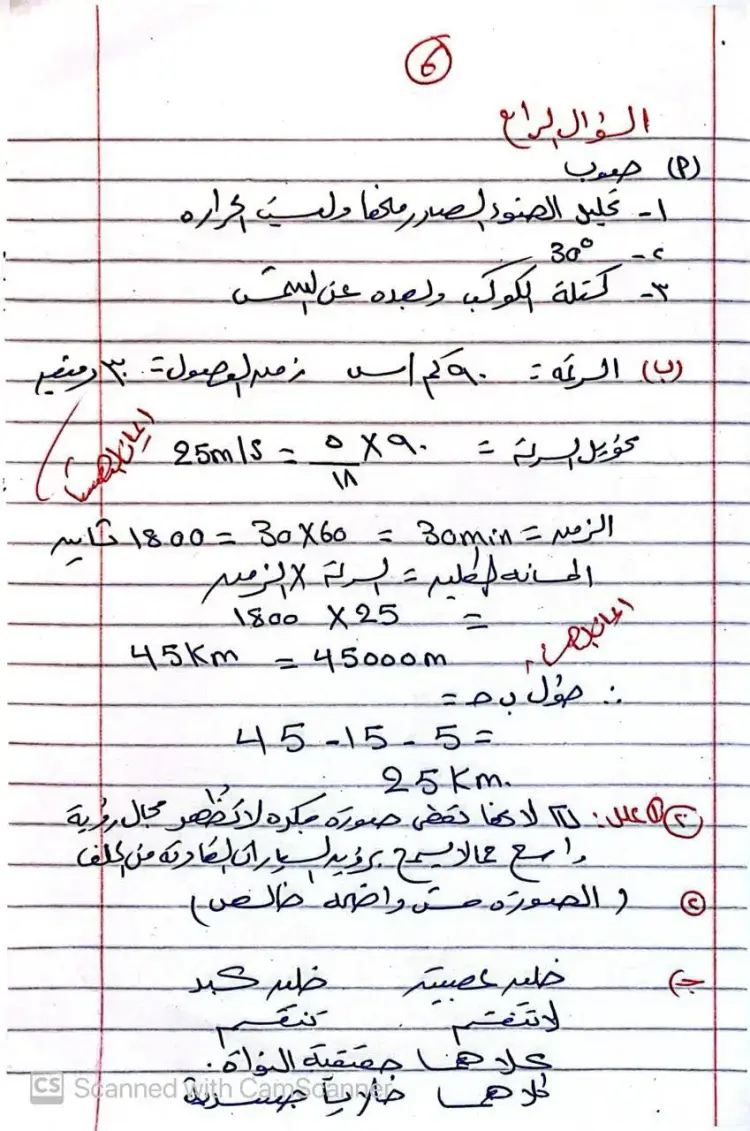 6
السؤال الرابع
(P) صوب
١- تحليل الضوء الصادر منها وليست الحرارة
٢- 30°
٣- كتلة الكوكب وبعده عن الشمس
(ب) السرعة = ٩٠ كم/س زمن الوصول = ٣٠ دقيقة
تحويل السرعة = ٩٠ X ٥ / ١٨ = 25m/s
الزمن = 30min = 30X60 = 1800 ثانية
المسافة الكلية = السرعة X الزمن
= 25 X 1800
45000m = 45Km
∴ طول ب حـ =
= 45 - 15 - 5
25Km.
٢) ١) علل: لأنها تعطي صورة مكبرة لا تظهر مجال رؤية
واسع مما لا يسمح برؤية السيارات القادمة من الخلف
٢) (الصورة مش واضحة خالص)
جـ) خلية عصبية خلية كبد
لا تنقسم تنقسم
كلاهما حقيقية النواة.
كلاهما خلايا جسدية
CS Scanned with CamScanner